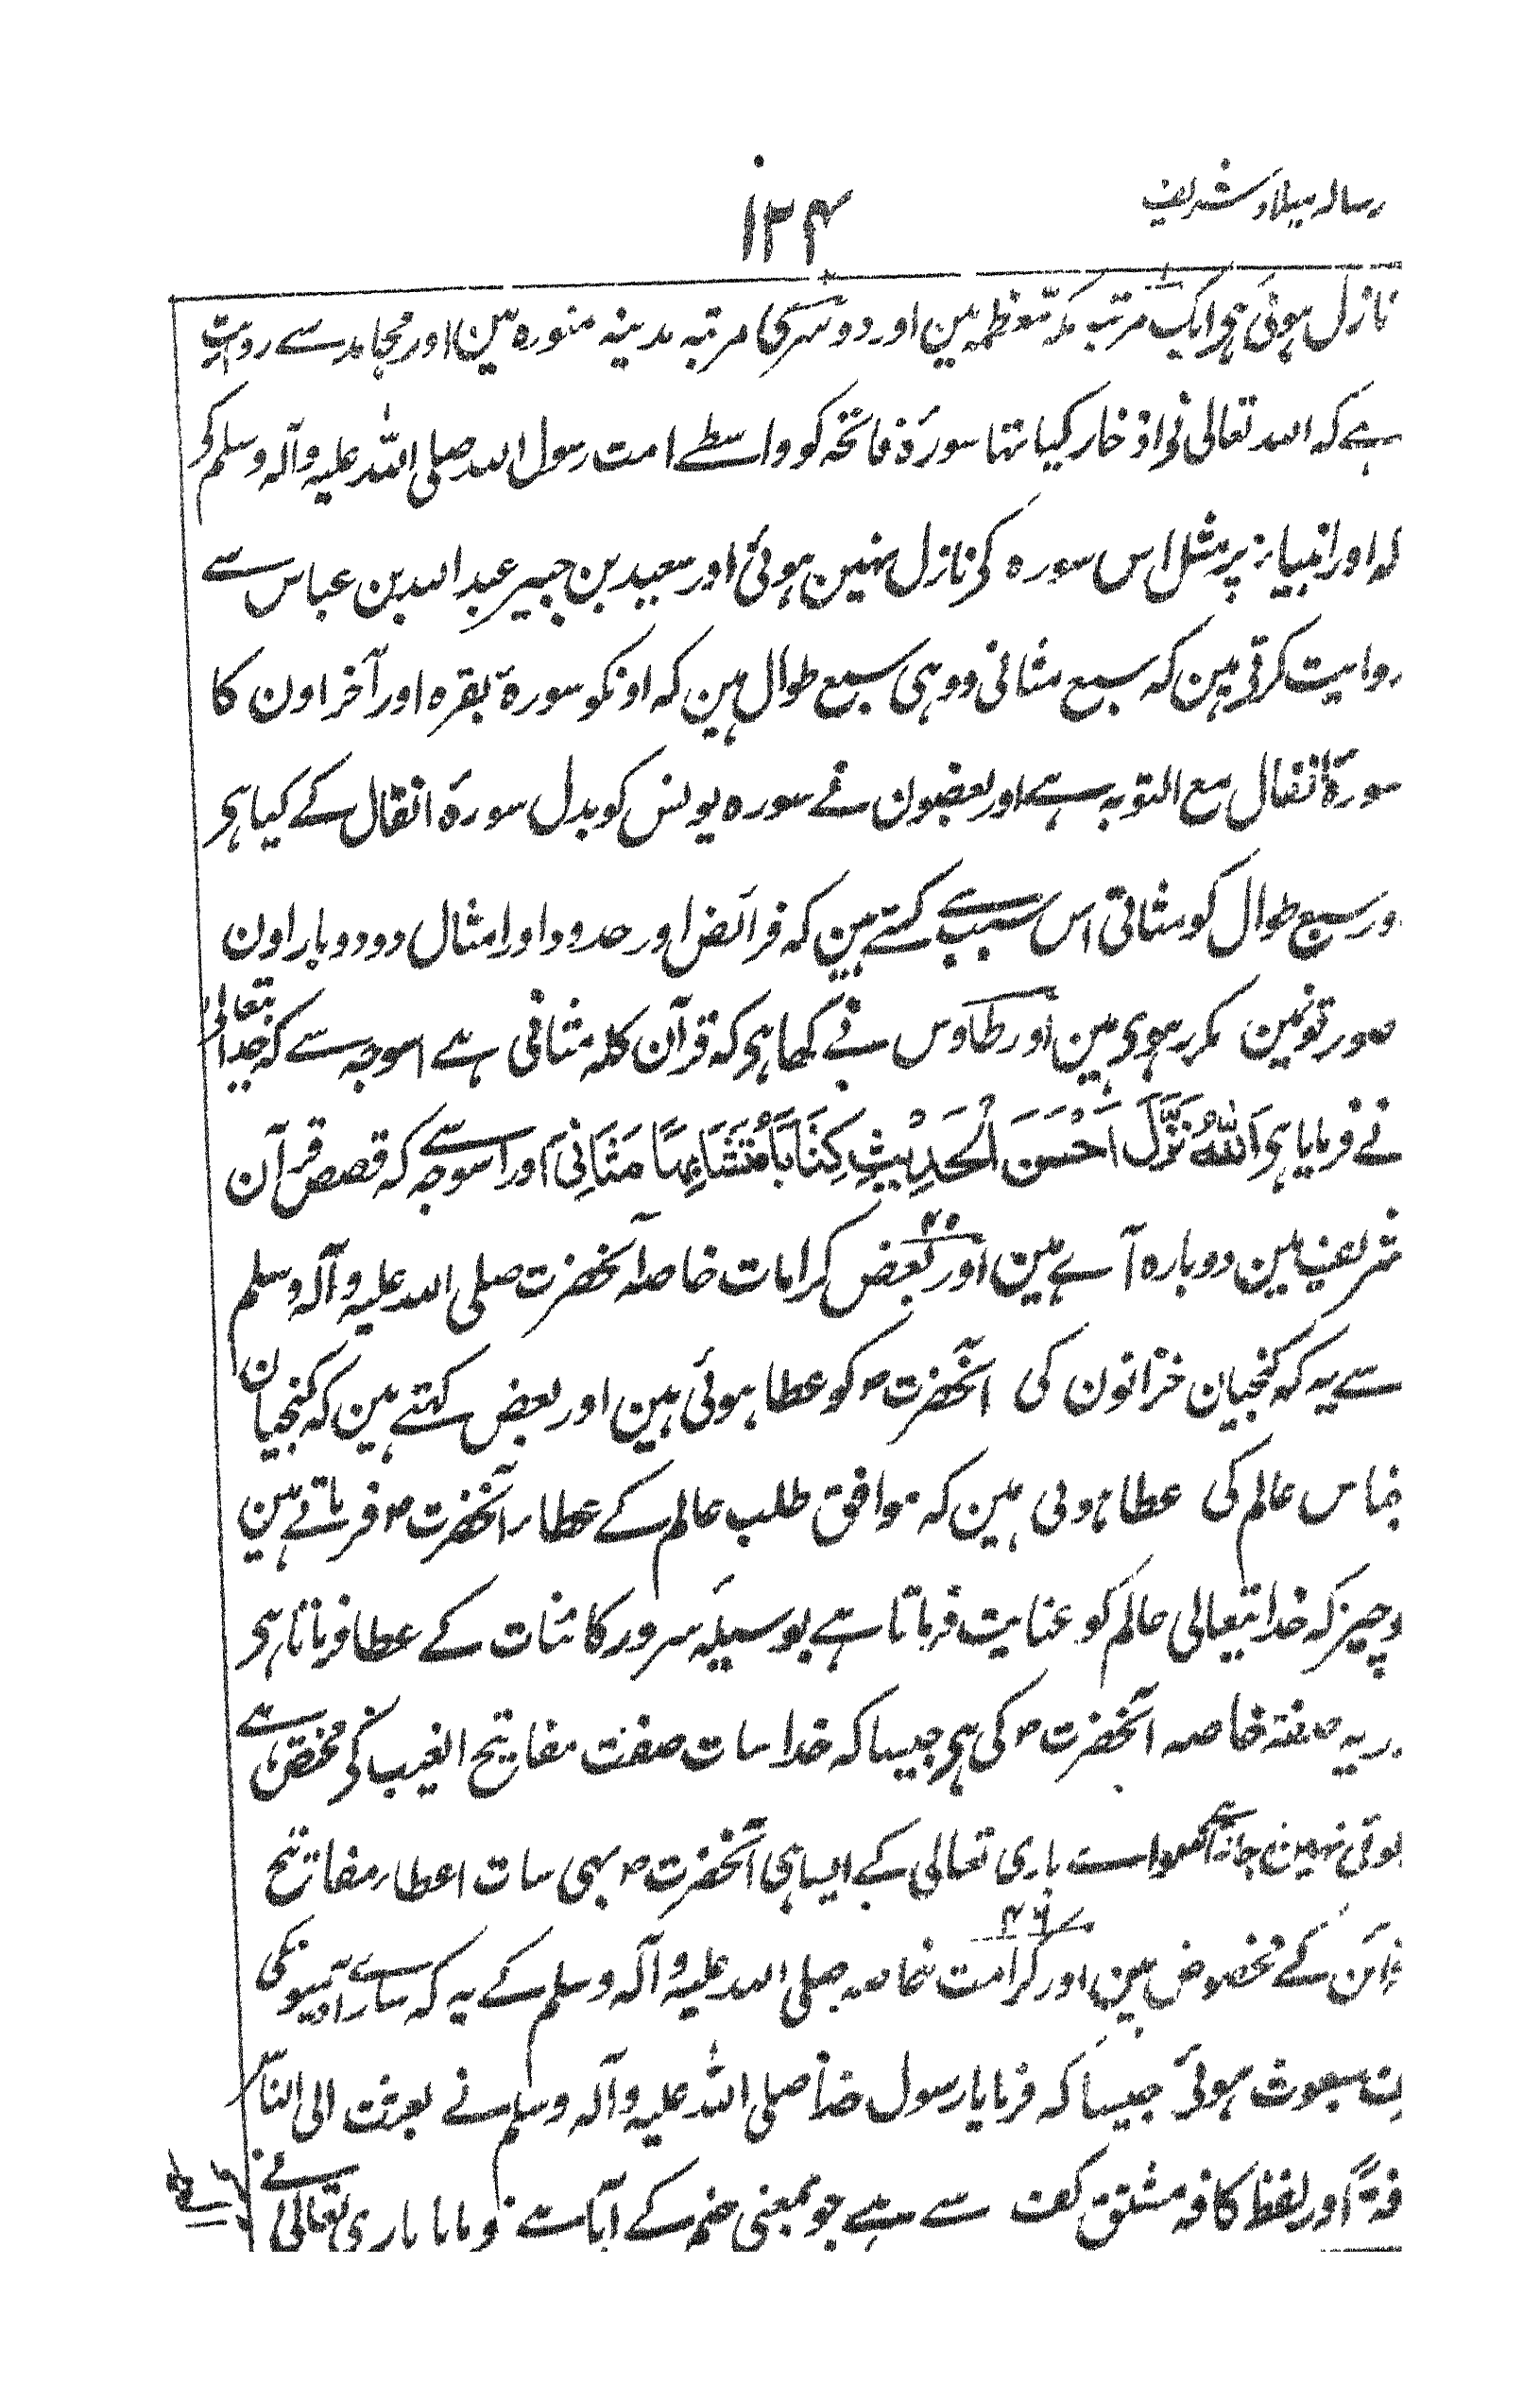 رساله میلاد شریف
۱۲۴
نازل ہوئی ہی ایک مرتبہ مکہ معظمہ مین اور دوسری مرتبہ مدینہ منورہ مین اور مجاہد سے روایت
ہے کہ اللہ تعالی نی اذخار کیا تہا سورۂ فاتحہ کو واسطے امت رسول اللہ صلی اللہ علیہ وآلہ وسلم کی
کہ اور انبیاء پر مثل اس سورہ کی نازل نہین ہوئی اور سعید بن جبیر عبد اللہ بن عباس سے
روایت کرتی ہین کہ سبع مثانی وہی سبع طوال ہین کہ اونکو سورۃ بقرہ اور آخر اون کا
سورۂ انفال مع التوبہ ہے اور بعضون نے سورہ یونس کو بدل سورۂ انفال کے کیا ہی
ور سبع طوال کو مثانی اس سبب سے کہتے ہین کہ فرائض اور حدود اور امثال دو دو بار اون
صورتونمین مکرر ہوی ہین اور طاوس نے کہا ہی کہ قرآن کلہ مثانی ہے اسوجہ سے کہ خدا تعالی
نے فرمایا ہی اَللّٰهُ نَزَّلَ اَحْسَنَ الْحَدِیْثِ کِتَابًا مُتَشَابِهًا مَثَانِیَ اور اسوجہ سے کہ قصص قرآن
شریف مین دوبارہ آے ہین اور بعض کرامات خاصہ آنحضرت صلی اللہ علیہ وآلہ وسلم
سے یہ کہ کنجیان خزانون کی آنحضرت ؐ کو عطا ہوئی ہین اور بعض کہتے ہین کہ کنجیان
جناس عالم کی عطا ہوئی ہین کہ موافق طلب عالم کے عطاء آنحضرت ؐ فرماتے ہین
وچیز کہ خدا تعالی عالم کو عنایت فرماتا ہے بوسیلہ سرور کائنات کے عطا فرماتا ہی
ر یہ صفت خاصہ آنحضرت ؐ کی ہی جیسا کہ خدا سات صفت مفاتیح الغیب کی مختص ہے
کوئی نہین جانتا ہے سوا ے باری تعالی کے ایسا ہی آنحضرت ؐ بہی سات اعطاء مفاتیح
خزائن کے مخصوص ہین اور کرامت خاصہ صلی اللہ علیہ وآلہ وسلم کے یہ کہ سارے آدمیونکی
ت مبعوث ہوئی جیسا کہ فرمایا رسول خدا صلی اللہ علیہ وآلہ وسلم نے بعثت الی الناس
فۃً اور لفظ کافہ مشتق کف سے ہے جو بمعنی ضم کے آیا ہے فرمایا باری تعالی نے